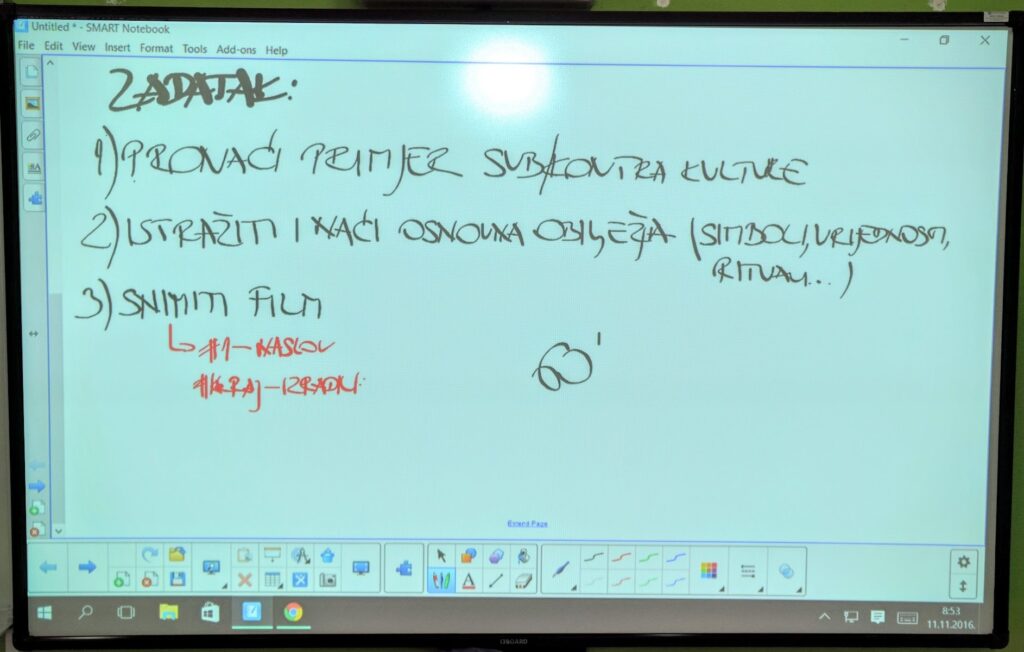 Untitled * - SMART Notebook
File Edit View Insert Format Tools Add-ons Help
ZADATAK:
1) PRONAĆI PRIMJER SUB/KONTRA KULTURE
2) ISTRAŽITI I NAĆI OSNOVNA OBILJEŽJA (SIMBOLI, VRIJEDNOSTI,
RITUALI...)
3) SNIMITI FILM
#1 - NASLOV
#KRAJ - IZRADILI:
60'
Extend Page
8:53
11.11.2016.